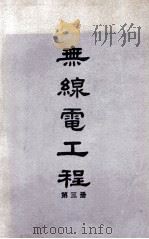 無線電工程
第三册